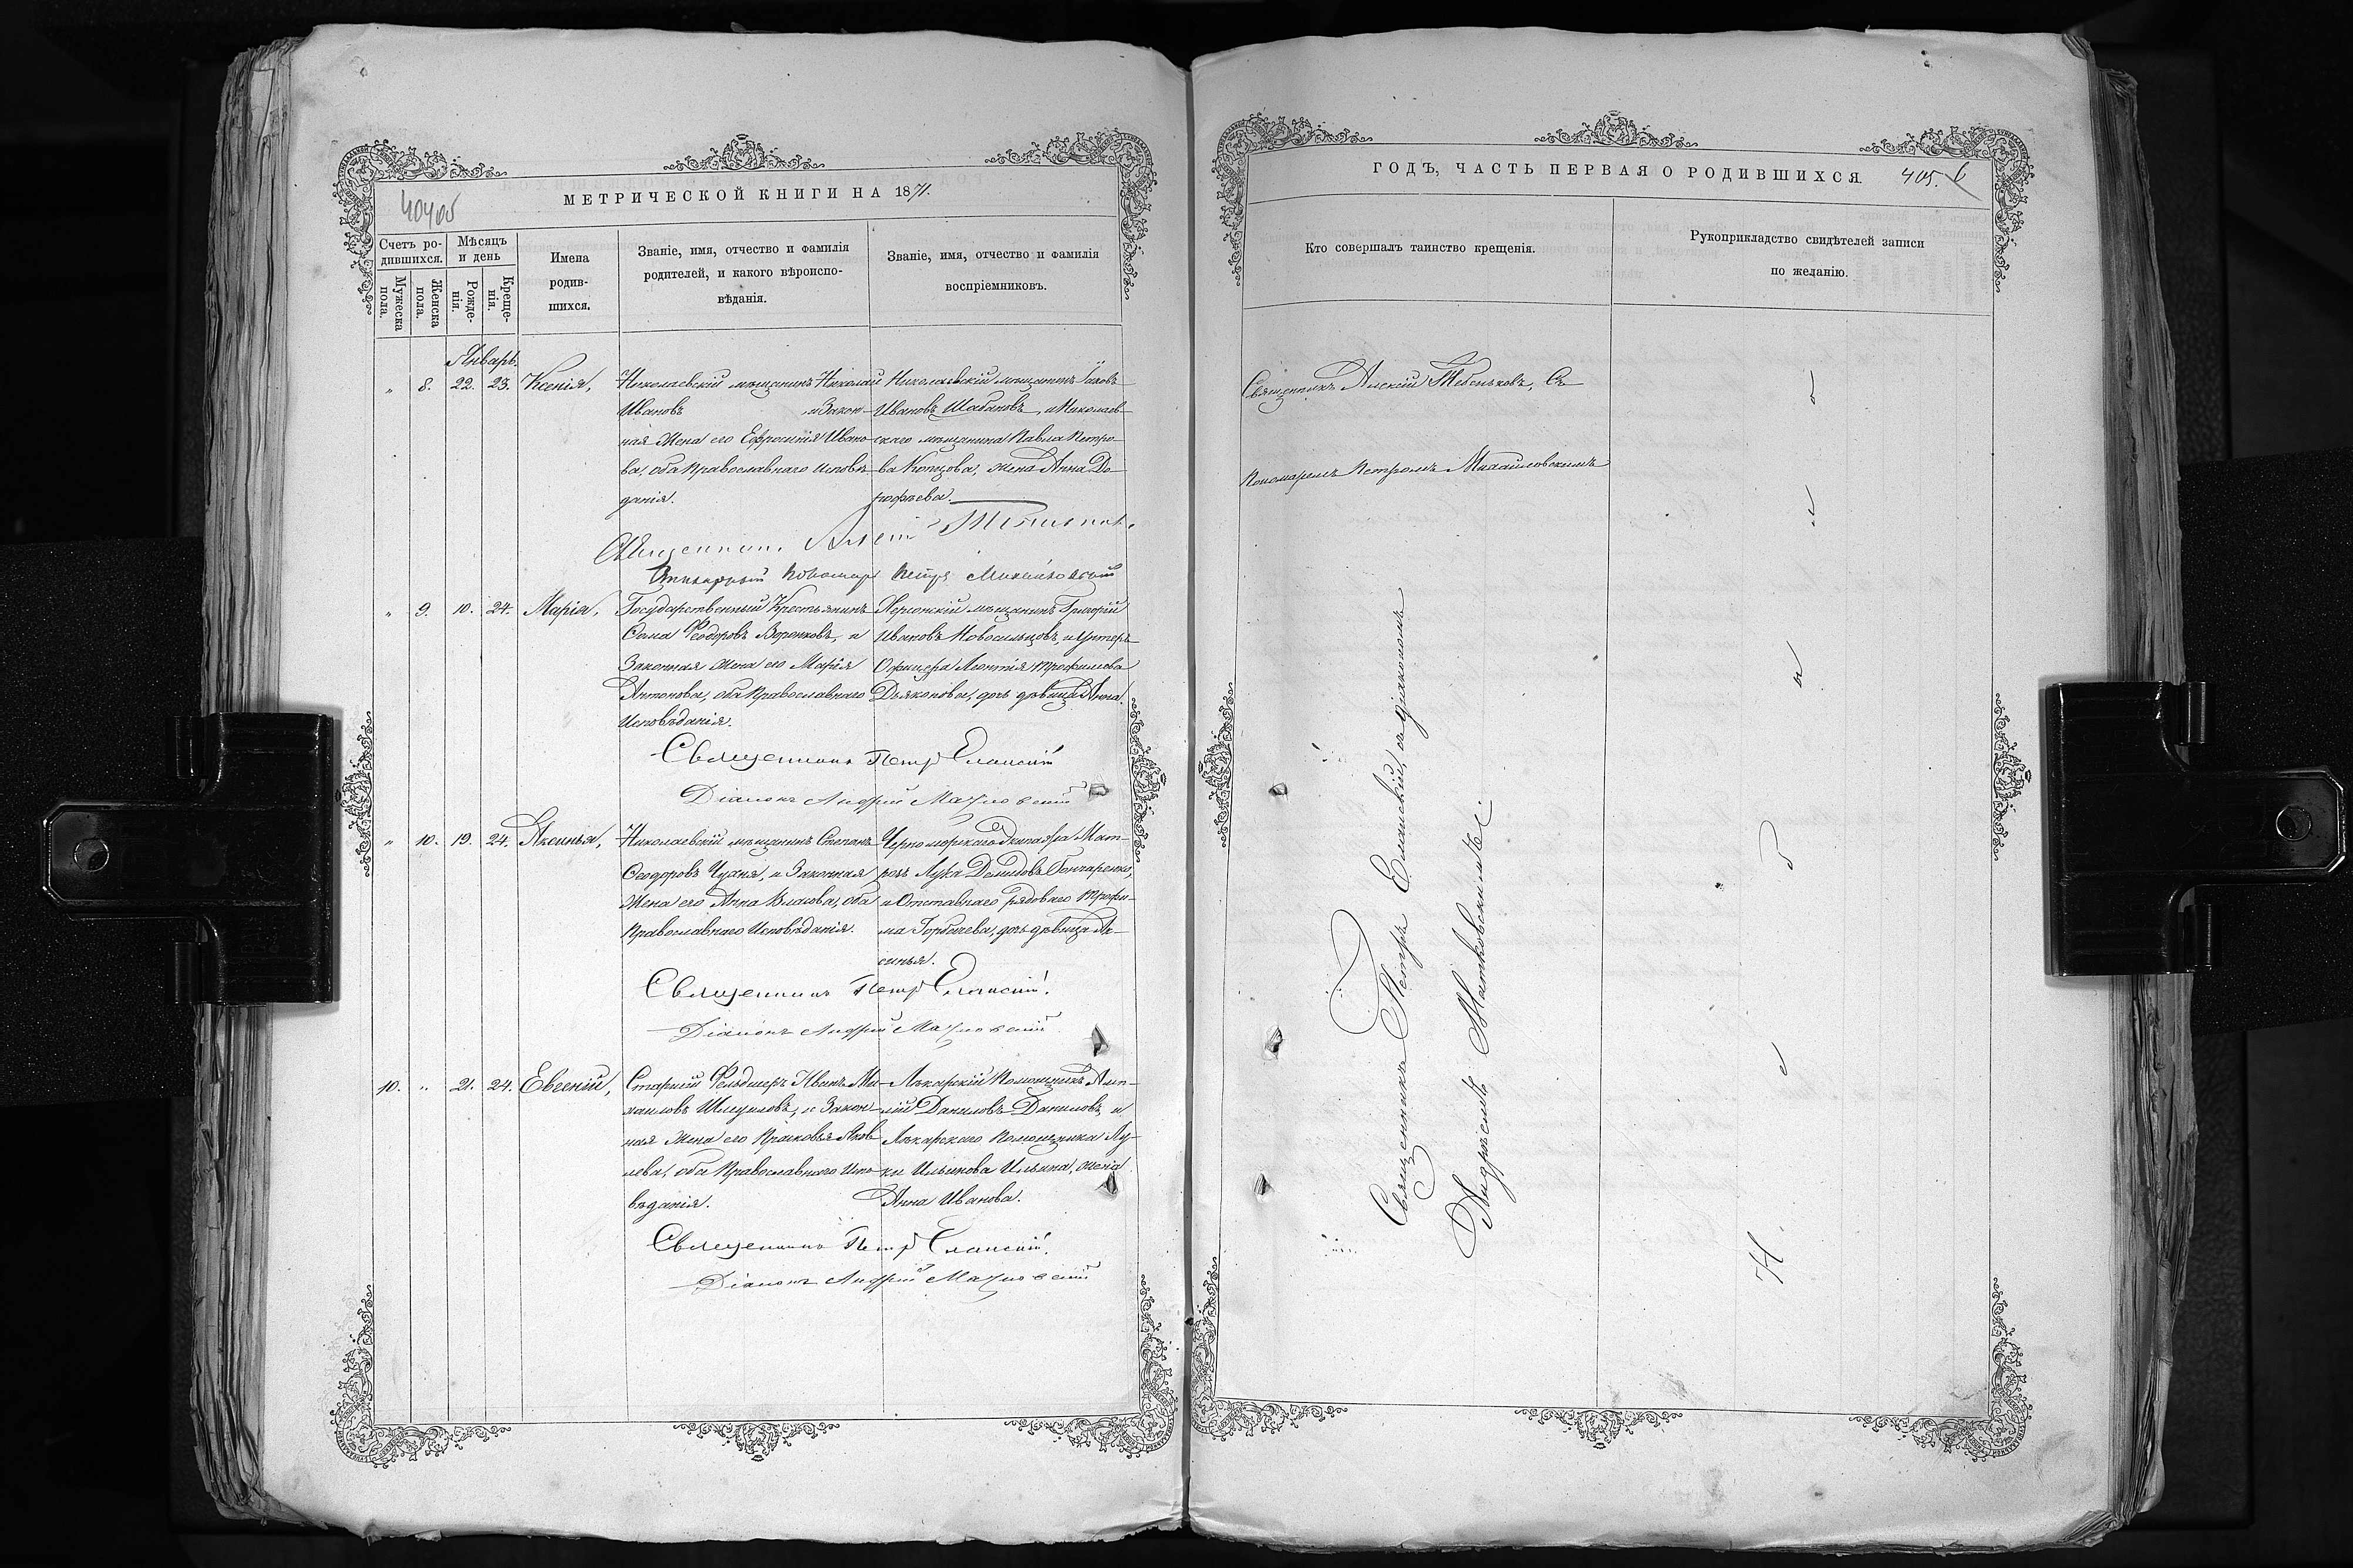 МЕТРИЧЕСКОЙ КНИГИ НА 1871.
40405
Счетъ ро-
дившихся.
Мужеска пола.
Женска пола.
Мѣсяцъ
и день
Рожде-
нія.
Креще-
нія.
Имена
родив-
шихся.
Званіе, имя, отчество и фамилія
родителей, и какого вѣроиспо-
вѣданія.
Званіе, имя, отчество и фамилія
воспріемниковъ.
Январь.
„ 8. 22. 23. Ксенія,
Николаевскій мѣщанинъ Николай
Ивановъ и Закон-
ная Жена его Ефросинія Ивано-
ва, оба Православнаго исповѣ-
данія.
Николаевскій мѣщанинъ Іаковъ
Ивановъ Шабановъ, и Николаев-
скаго мѣщанина Павла Петро-
ва Копцова, жена Анна До-
рофѣева.
Священникъ Алексій
Пономарь Петръ Михайловскій
„ 9. 10. 24. Марія,
Государственный Крестьянинъ
Сама Ѳеодоровъ Воронковъ, и
Законная Жена его Марія
Антонова, оба Православнаго
Исповѣданія.
Херсонскій мѣщанинъ Григорій
Ивановъ Новосильцовъ, и Унтеръ
Офицера Леонтія Трофимова
Дьяконова, дочь дѣвица Анна.
Священникъ Петръ Еланскій
Діаконъ Андрей Матковскій
„ 10. 19. 24. Аксинья,
Николаевскій мѣщанинъ Степанъ
Ѳеодоровъ Чухня, и Законная
Жена его Анна Власова, оба
Православнаго Исповѣданія.
Черноморскаго Экипажа Мат-
росъ Лука Демидовъ Гончаренко,
и Отставнаго рядоваго Трофи-
ма Горбачева, дочь дѣвица Ак-
синья.
Священникъ Петръ Еланскій.
Діаконъ Андрей Матковскій
10. „ 21. 24. Евгеній,
Старшій Фельдшеръ Иванъ Ми-
хаиловъ и Закон-
ная Жена его Прасковья Яков-
лева, оба Православнаго Испо-
вѣданія.
Лѣкарскій Помощникъ
Даниловъ Даниловъ, и
Лѣкарскаго Помощника Лу-
ки Ильинова Ильина, жена
Анна Иванова.
Священникъ Петръ Еланскій.
Діаконъ Андрей Матковскій
ГОДЪ, ЧАСТЬ ПЕРВАЯ О РОДИВШИХСЯ.
405. 6
Кто совершалъ таинство крещенія.
Рукоприкладство свидѣтелей записи
по желанію.
Священникъ Алексій Тебеньковъ, Съ
Пономаремъ Петромъ Михайловскимъ
Священникъ Петръ Еланскій, съ діакономъ
Андреемъ Матковскимъ.